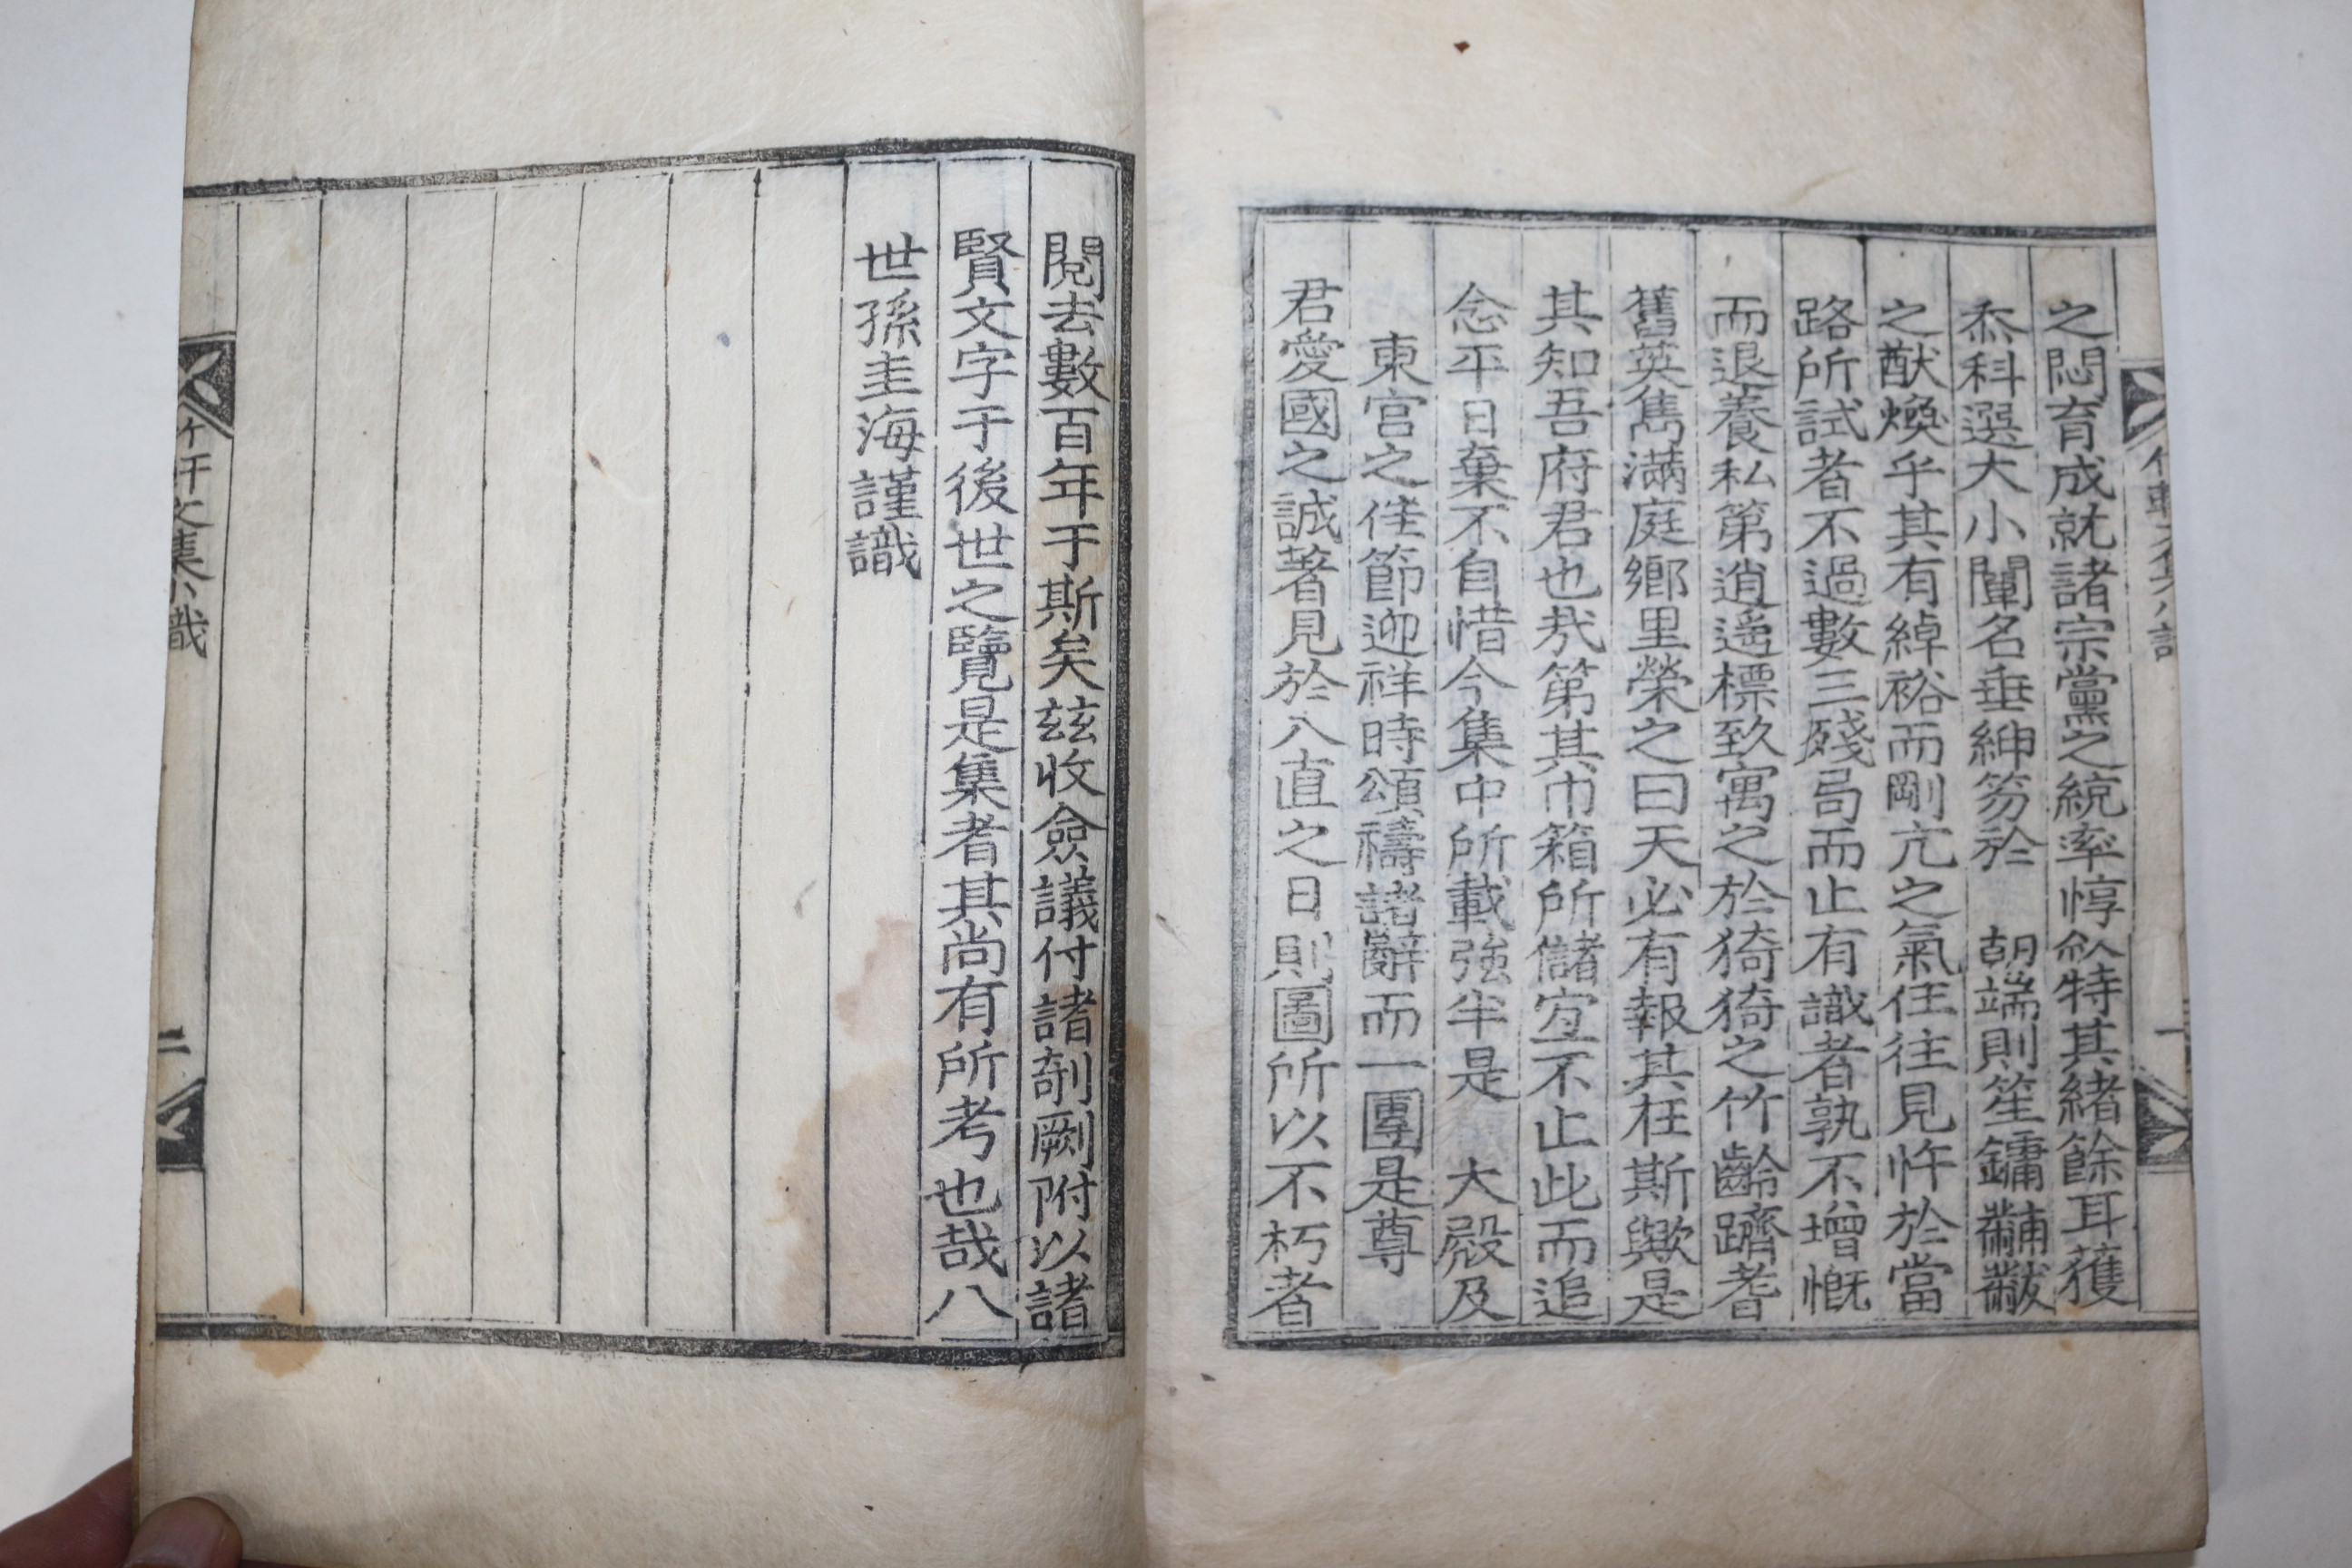 之悶育成就諸宗黨之統率惇欱特其緒餘耳獲
忝科選大小闈名垂紳笏於 朝端則笙鏞黼黻
之猷煥乎其有綽裕而剛亢之氣徃徃見忤於當
路所試者不過數三殘局而止有識者孰不增慨
而退養私第逍遥標致寓之於猗猗之竹齡躋耆
舊英雋滿庭鄕里榮之曰天必有報其在斯歟是
其知吾府君也㢤第其巾箱所儲宜不止此而追
念平日棄不自惜今集中所載強半是 大殿及
東宮之徃節迎祥時頌禱諸辭而一團是尊
君愛國之誠著見於八直之日則圖所以不朽者
閱去數百年于斯矣玆收僉議付諸剞劂附以諸
賢文字于後世之覽是集者其尚有所考也哉八
世孫圭海謹識
竹軒文集 識
二